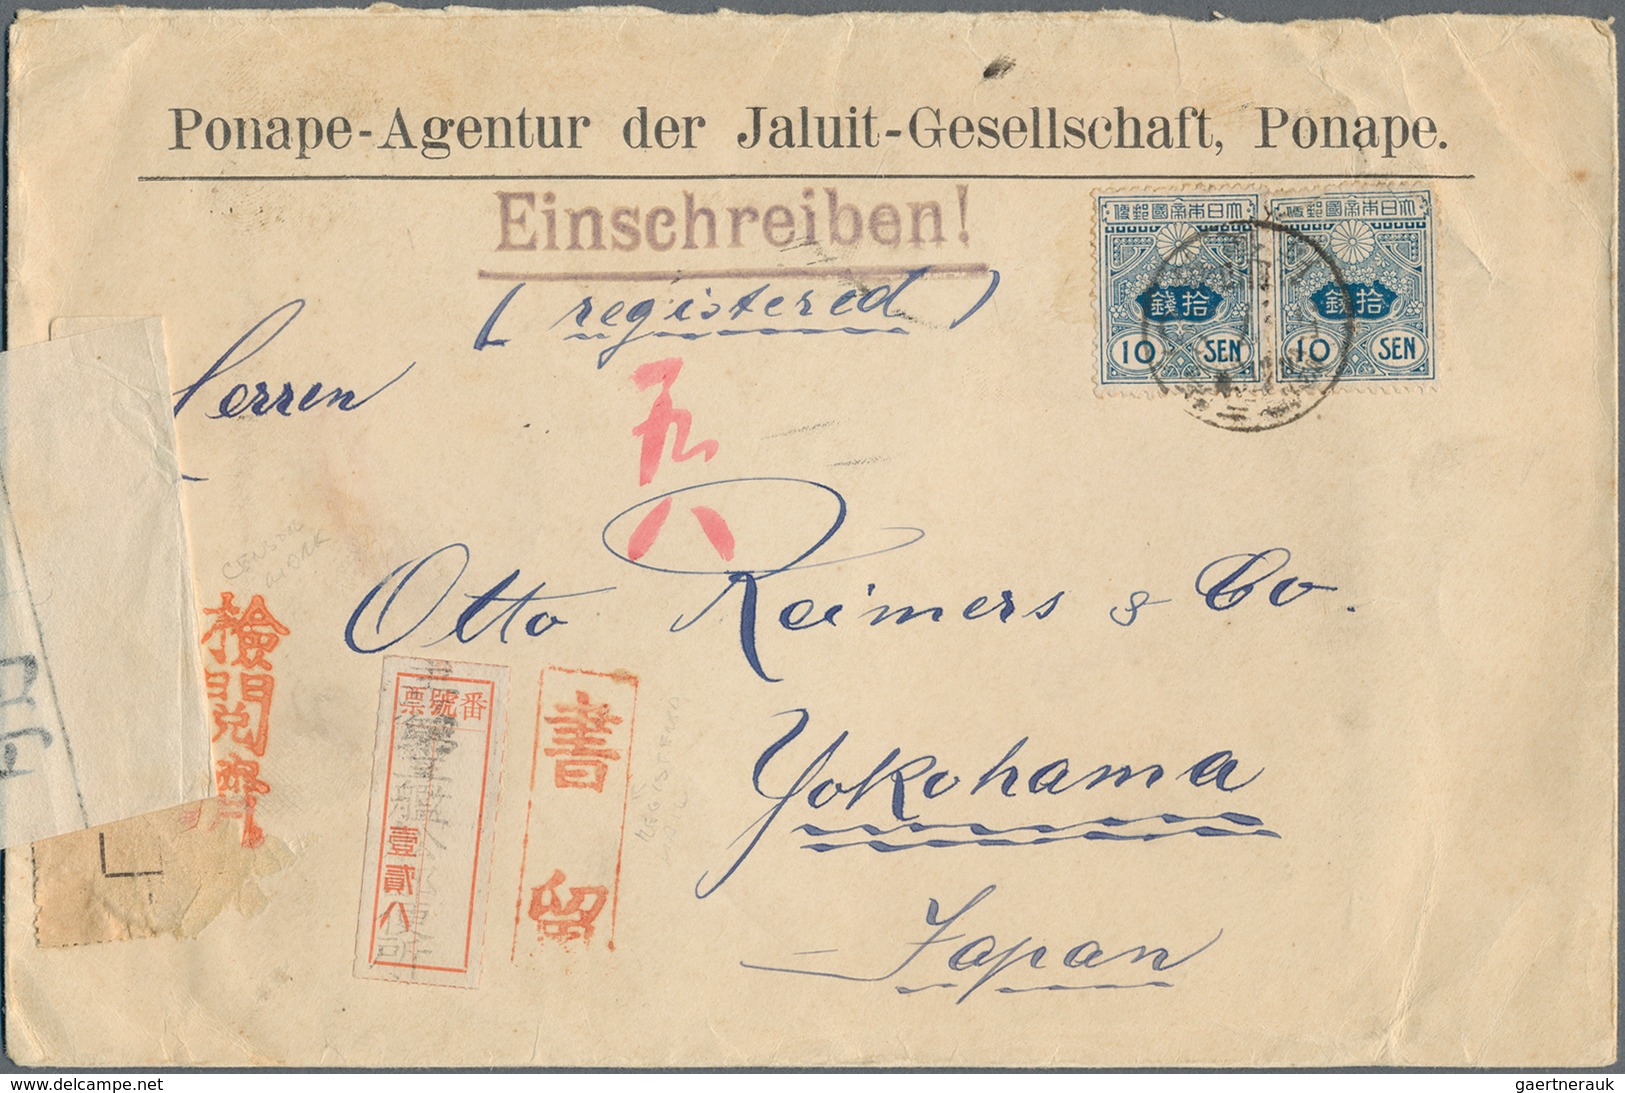 Ponape-Agentur der Jaluit-Gesellschaft, Ponape.
Einschreiben!
(registered)
大日本帝國郵便
大日本帝國郵便
拾錢
拾錢
10 SEN
10 SEN
Herren
八
Otto Reimers & Co.
Yokohama
Japan
CENSOR
MARK
檢閲濟
番號票
壹貳八
書留
REGISTERED
delcampe.net
gaertnerauk